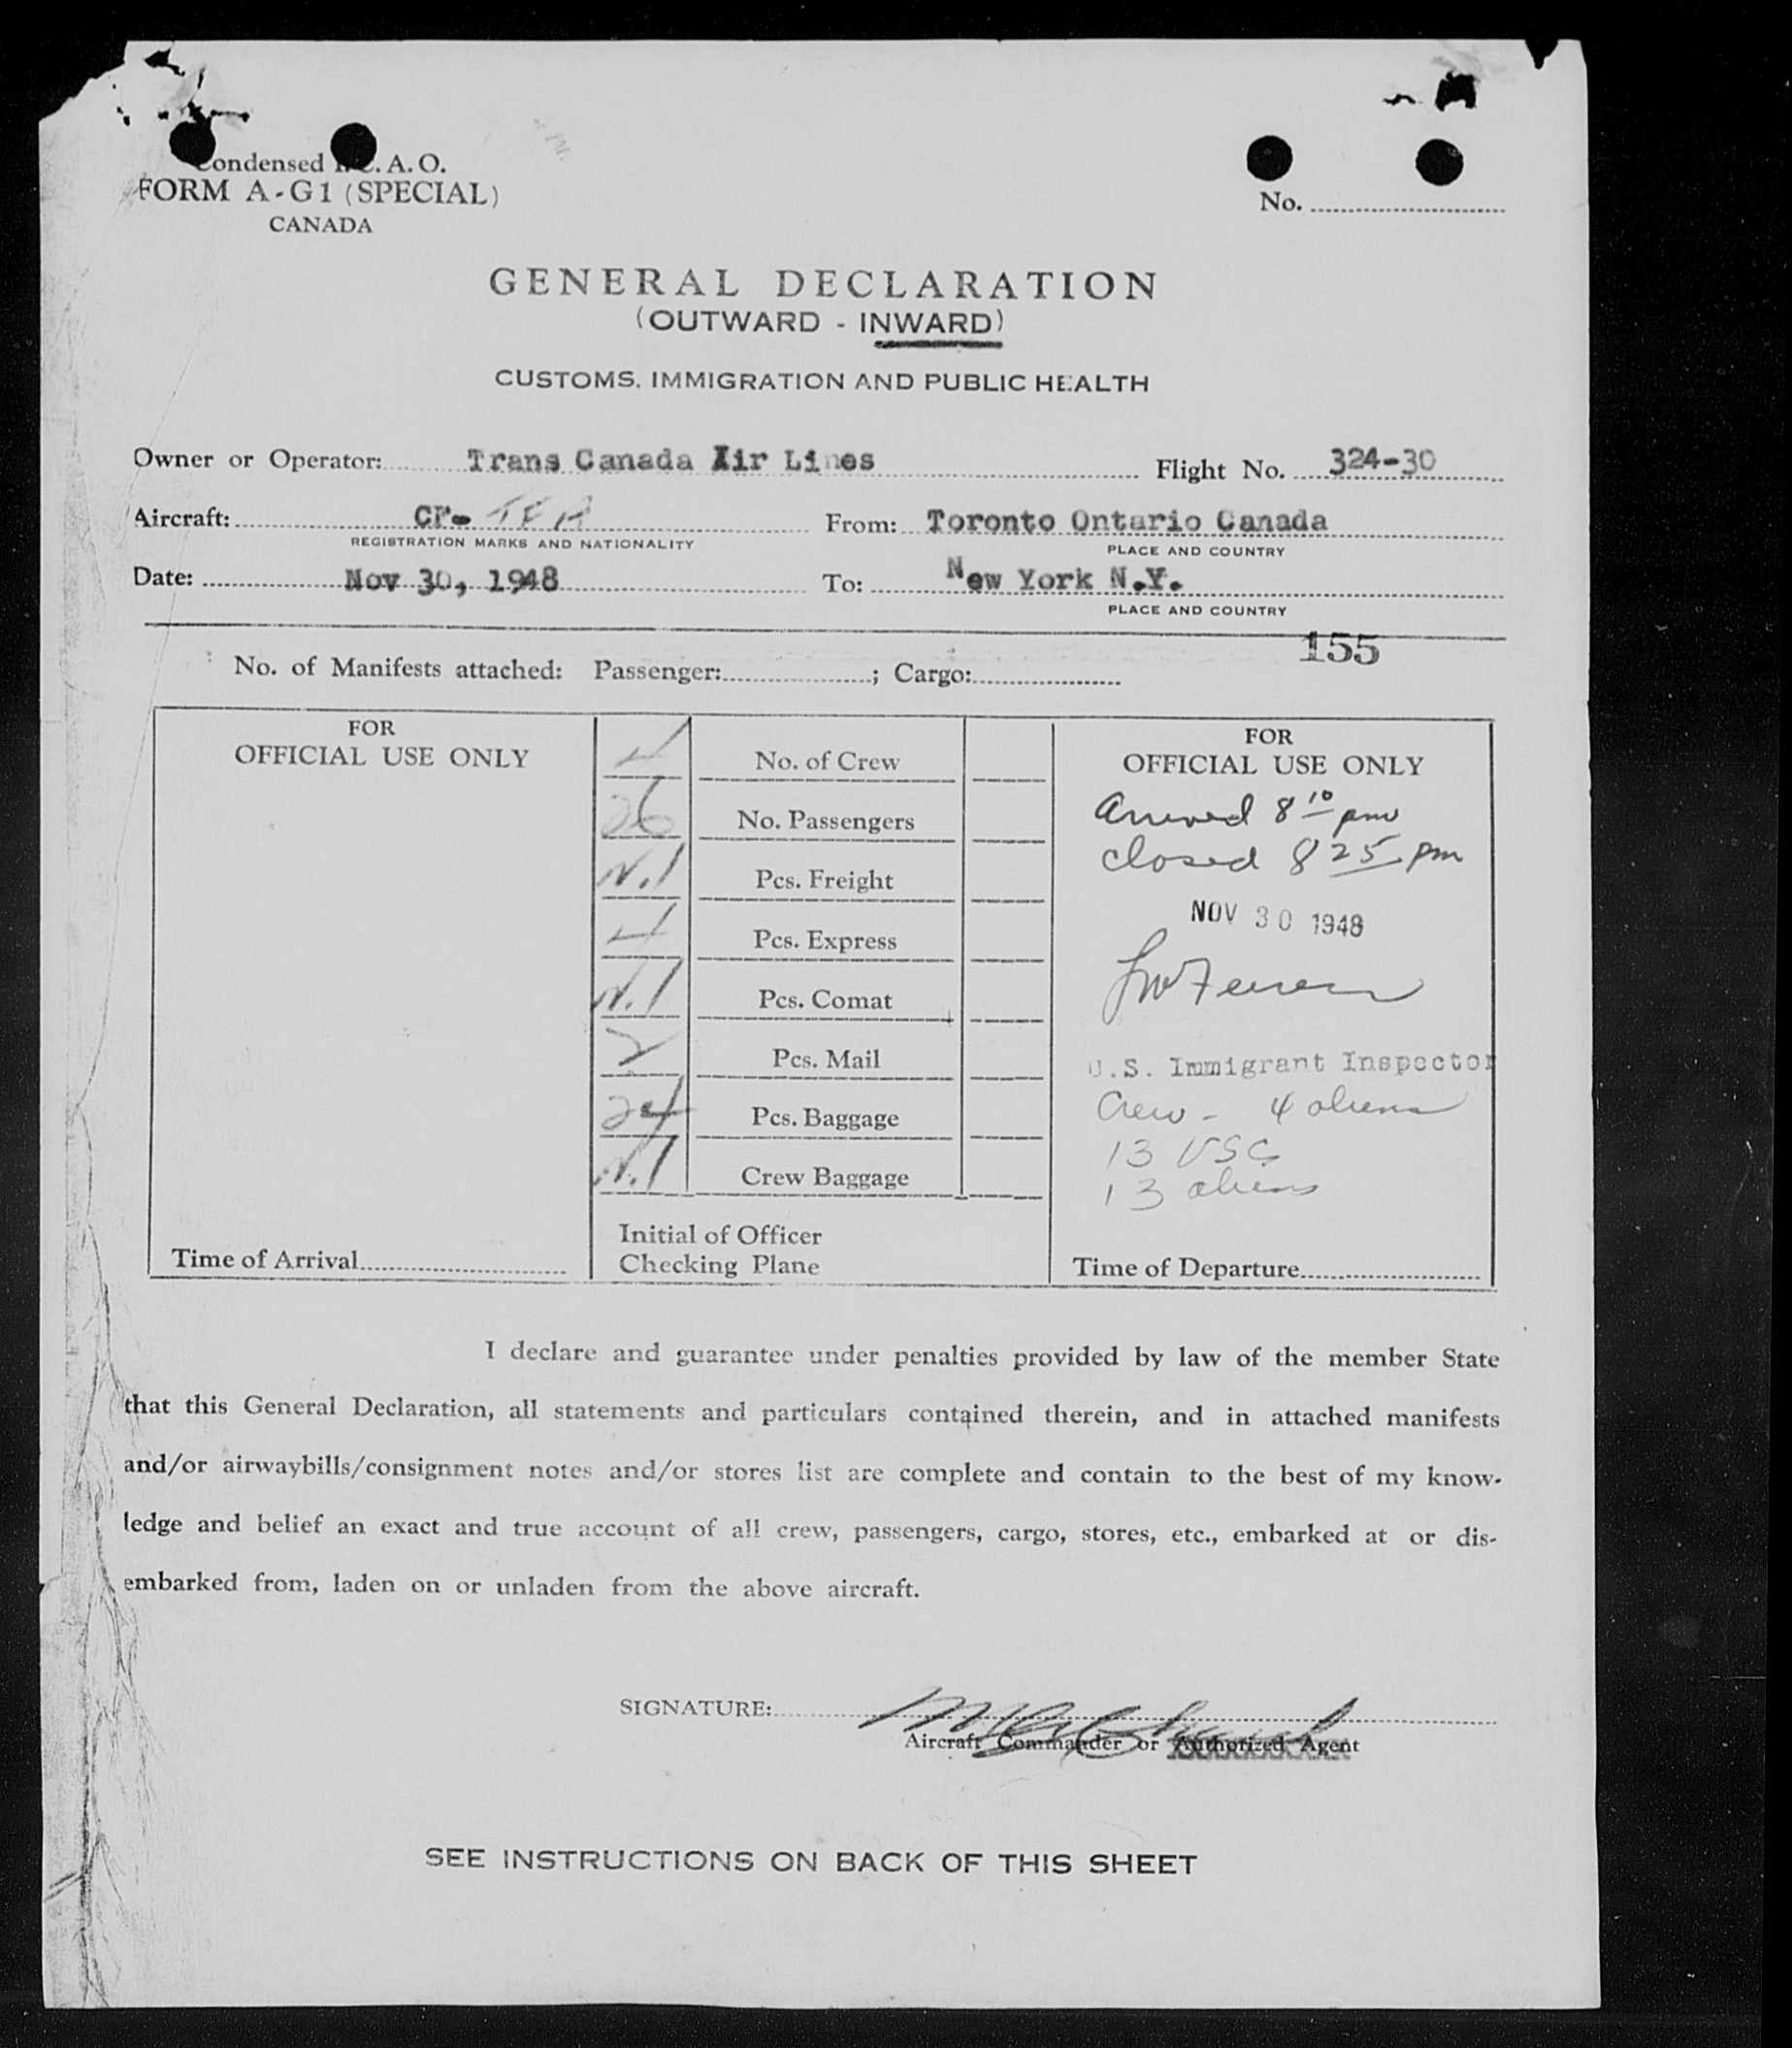 Condensed I.C.A.O.
FORM A-G1 (SPECIAL)
CANADA
No.
GENERAL DECLARATION
(OUTWARD - INWARD)
CUSTOMS, IMMIGRATION AND PUBLIC HEALTH
Owner or Operator: Trans Canada Air Lines Flight No. 324-30
Aircraft: CF- From: Toronto Ontario Canada
REGISTRATION MARKS AND NATIONALITY PLACE AND COUNTRY
Date: Nov 30, 1948 To: New York N.Y.
PLACE AND COUNTRY
155
No. of Manifests attached: Passenger: ; Cargo:
FOR
OFFICIAL USE ONLY
4 No. of Crew
26 No. Passengers
N.1 Pcs. Freight
4 Pcs. Express
N.1 Pcs. Comat
2 Pcs. Mail
24 Pcs. Baggage
N.1 Crew Baggage
Initial of Officer
Checking Plane
Time of Arrival
FOR
OFFICIAL USE ONLY
Arrived 8 10 pm
closed 8 25 pm
NOV 30 1948
U.S. Immigrant Inspector
Crew - 4 aliens
13 USC
13 aliens
Time of Departure
I declare and guarantee under penalties provided by law of the member State
that this General Declaration, all statements and particulars contained therein, and in attached manifests
and/or airwaybills/consignment notes and/or stores list are complete and contain to the best of my know-
ledge and belief an exact and true account of all crew, passengers, cargo, stores, etc., embarked at or dis-
embarked from, laden on or unladen from the above aircraft.
SIGNATURE:
Aircraft Commander or Authorized Agent
SEE INSTRUCTIONS ON BACK OF THIS SHEET